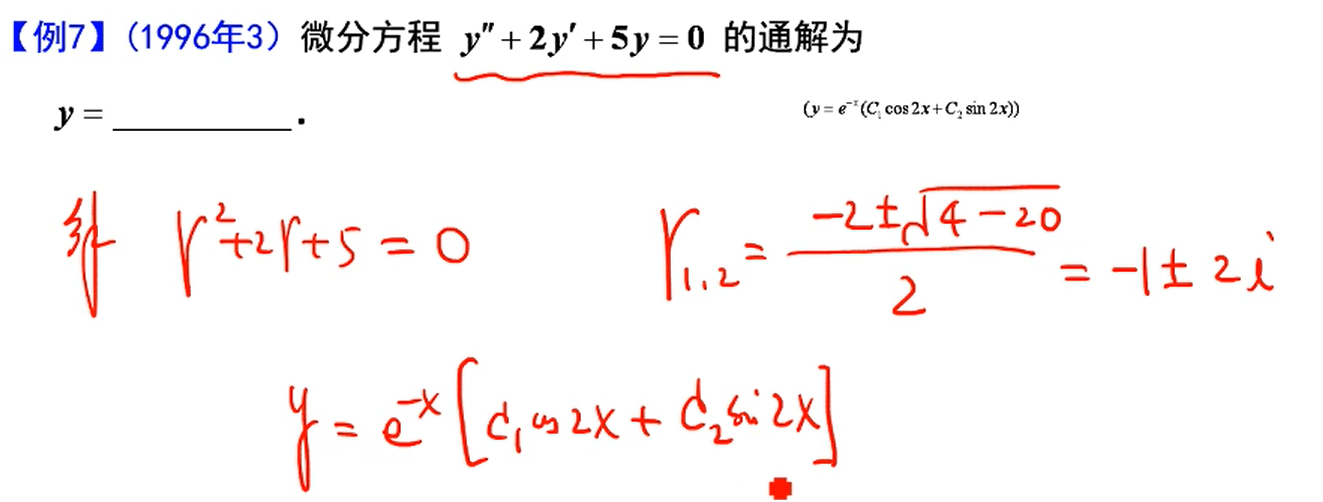 【例7】(1996年3) 微分方程 y″+2y′+5y=0 的通解为
y = __________ .
(y = e⁻ˣ(C₁ cos 2x + C₂ sin 2x))
解 r²+2r+5=0
r₁,₂ = (-2±√(4-20))/2 = -1±2i
y = e⁻ˣ[C₁ cos 2x + C₂ sin 2x]